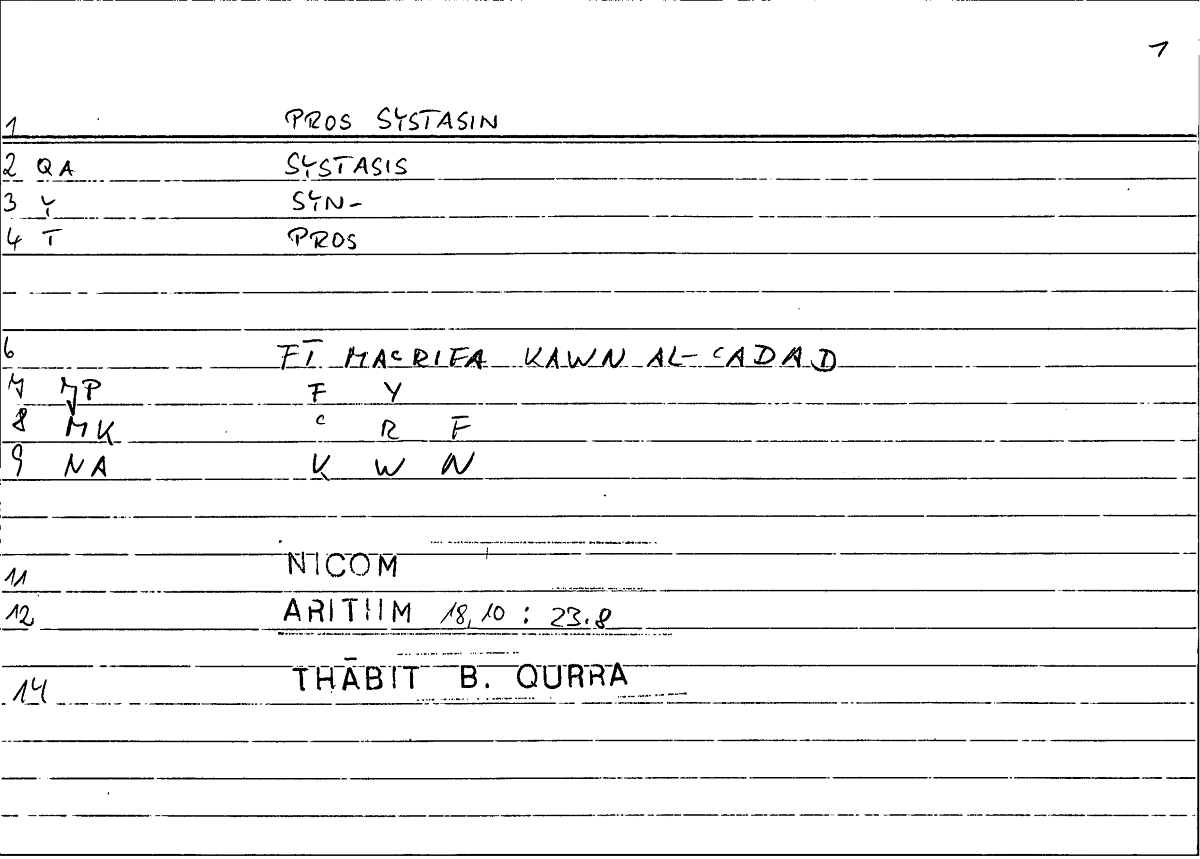 1
1 PROS SYSTASIN
2 QA SYSTASIS
3 Y SYN-
4 T PROS
6 FĪ MAcRIFA KAWN AL-cADAD
7 JP F Y
8 MK c R F
9 NA K W N
11 NICOM
12 ARITHM 18,10 : 23.8
14 THĀBIT B. QURRA